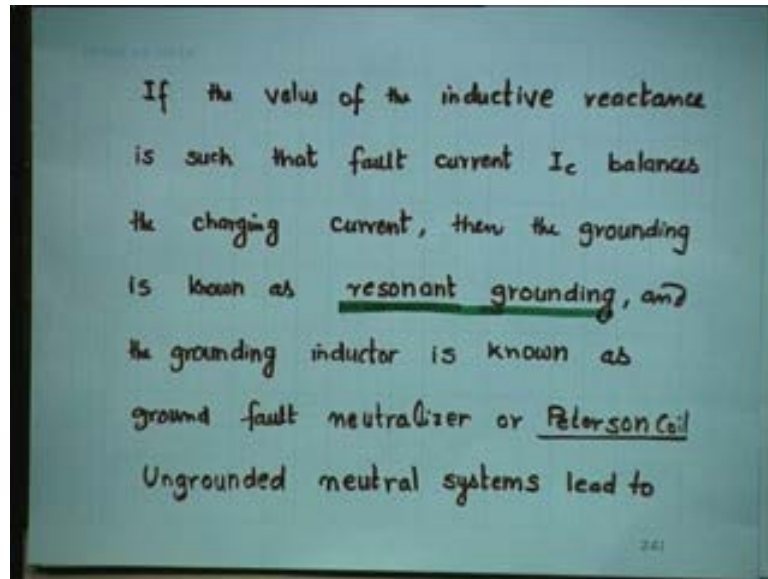 If the value of the inductive reactance
is such that fault current Ic balances
the charging current, then the grounding
is known as resonant grounding, and
the grounding inductor is known as
ground fault neutralizer or Peterson Coil
Ungrounded neutral systems lead to
261